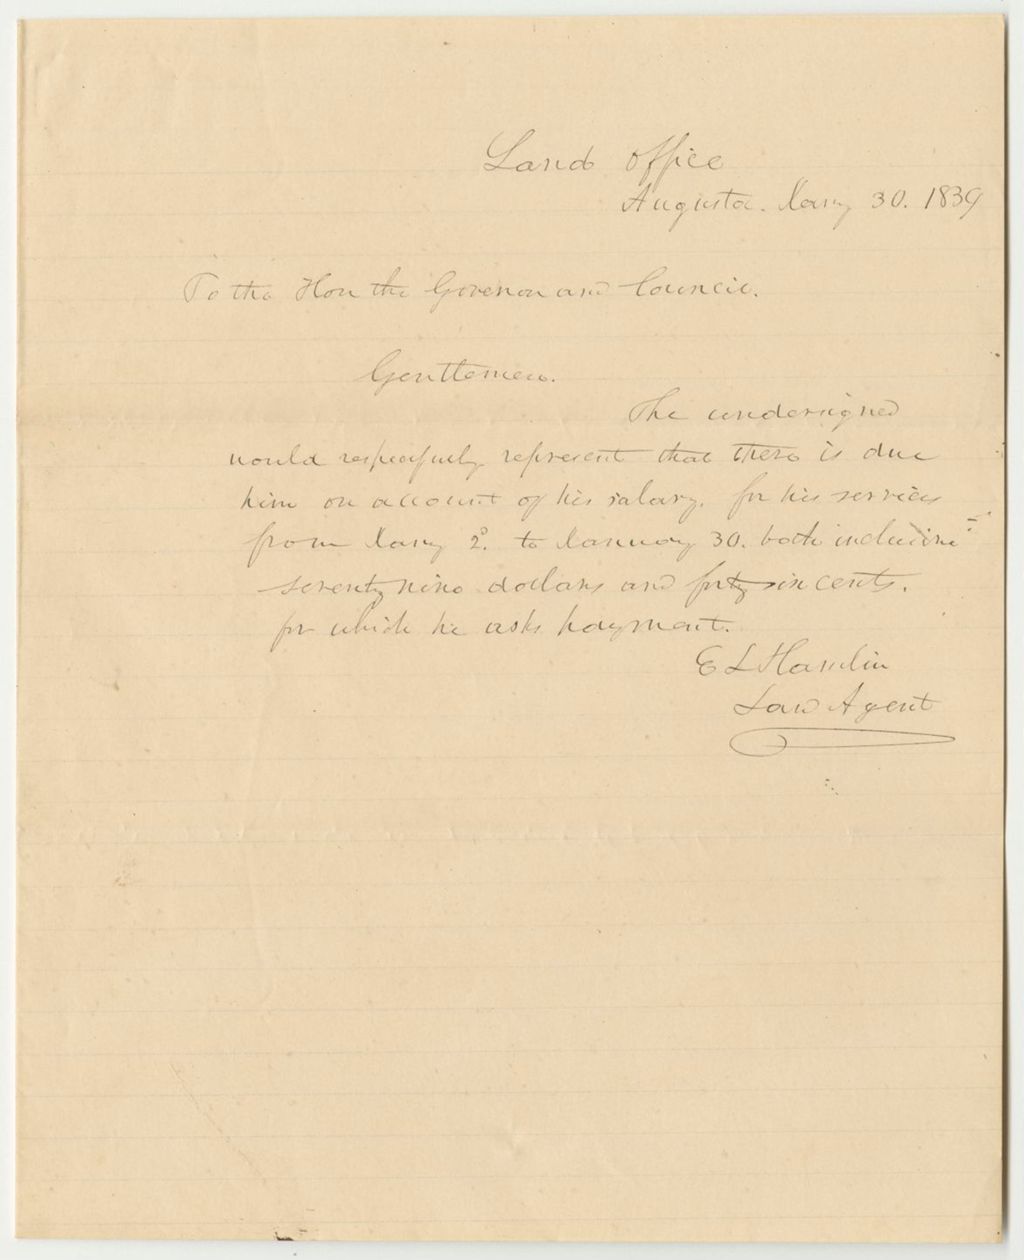 Land Office
Augusta. Jany 30. 1839
To the Hon the Governor and Council.
Gentlemen.
The undersigned
would respectfully represent that there is due
him on account of his salary. for his services
from Jany 2d. to January 30. both inclusive
seventy nine dollars and forty six cents.
for which he asks payment.
E L Hamlin
Land Agent